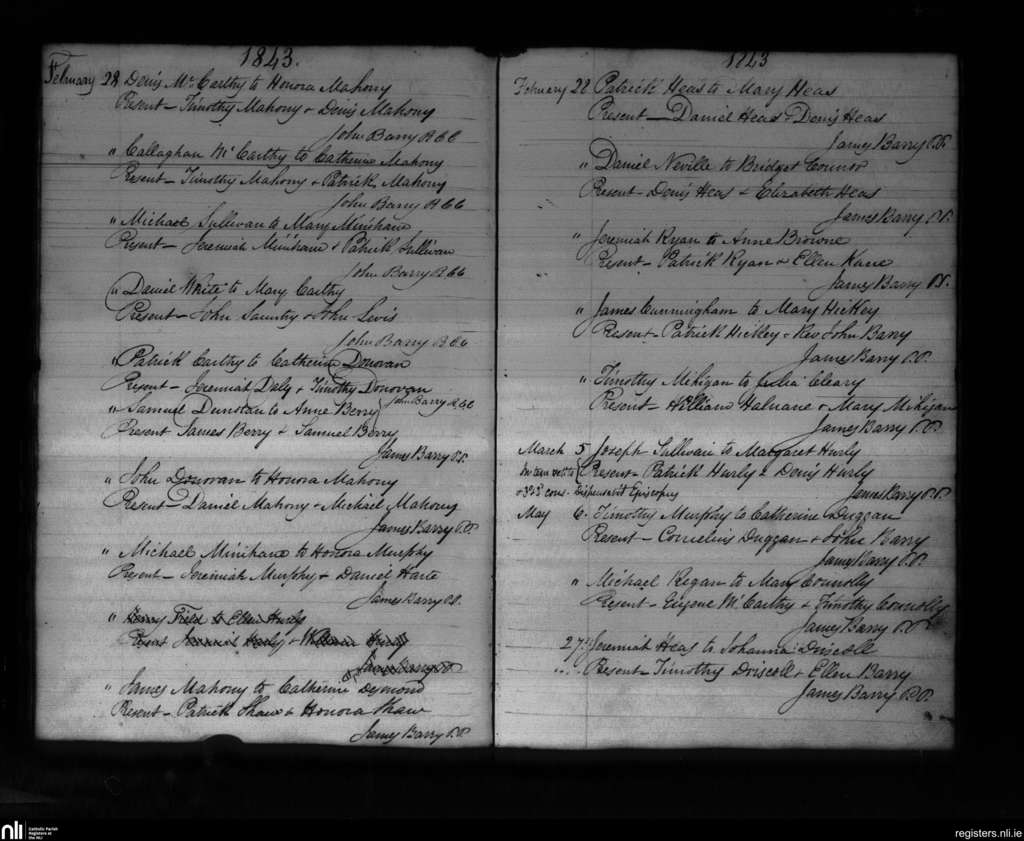 1843.
February 28 Denis Mc Carthy to Honora Mahony
Present - Timothy Mahony & Denis Mahony
John Barry R C C
" Callaghan Mc Carthy to Catherine Mahony
Present - Timothy Mahony & Patrick Mahony
John Barry R C C
" Michael Sullivan to Mary Minihane
Present - Jeremiah Minihane & Patrick Sullivan
John Barry R C C
" Daniel White to Mary Carthy
Present - John Sauntry & John Lewis
John Barry R C C
" Patrick Carthy to Catherine Donovan
Present - Jeremiah Daly & Timothy Donovan
John Barry R C C
" Samuel Dunstan to Anne Berry
Present James Berry & Samuel Berry
James Barry P.P.
" John Donovan to Honora Mahony
Present - Daniel Mahony & Michael Mahony
James Barry P.P.
" Michael Minihane to Honora Murphy
Present - Jeremiah Murphy & Daniel Harte
James Barry P.P.
" Henry Field to Ellen Hurly
Present Jeremiah Hurly & William Hurly
James Barry P.P.
" James Mahony to Catherine Desmond
Present - Patrick Shaw & Honora Shaw
James Barry P.P.
1843
February 28 Patrick Heas to Mary Heas
Present - Daniel Heas & Denis Heas
James Barry P.P.
" Daniel Neville to Bridget Connor
Present - Denis Heas & Elizabeth Heas
James Barry P.P.
" Jeremiah Ryan to Anne Browne
Present - Patrick Ryan & Ellen Kane
James Barry P.P.
" James Cunningham to Mary Hickey
Present - Patrick Hickey & Rev John Barry
James Barry P.P.
" Timothy Mihigan to Julia Cleary
Present - William Halnane & Mary Mihigan
James Barry P.P.
March 5 Joseph Sullivan to Margaret Hurly
Present - Patrick Hurly & Denis Hurly
cons. Dispensavit Episcopus
James Barry P.P.
May 6. Timothy Murphy to Catherine Duggan
Present - Cornelius Duggan & John Barry
James Barry P.P.
" Michael Regan to Mary Connolly
Present - Eugene Mc Carthy & Timothy Connolly
James Barry P.P.
27 Jeremiah Heas to Johanna Driscoll
Present - Timothy Driscoll & Ellen Barry
James Barry P.P.
nli
Catholic Parish
Registers at
the NLI
registers.nli.ie